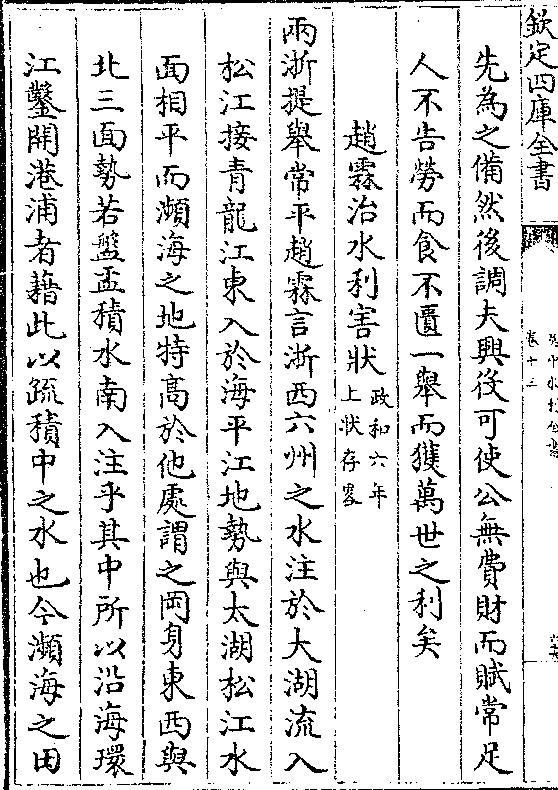 欽定四庫全書
卷十三
先為之備然後調夫興役可使公無費財而賦常足
人不告勞而食不匱一舉而獲萬世之利矣
趙霖治水利害狀政和六年上狀存畧
兩浙提舉常平趙霖言浙西六州之水注於太湖流入
松江接青龍江東入於海平江地勢與太湖松江水
面相平而瀕海之地特高於他處謂之岡身東西與
北三面勢若盤盂積水南入注乎其中所以沿海環
江鑿開港浦者藉此以疏積中之水也今瀕海之田